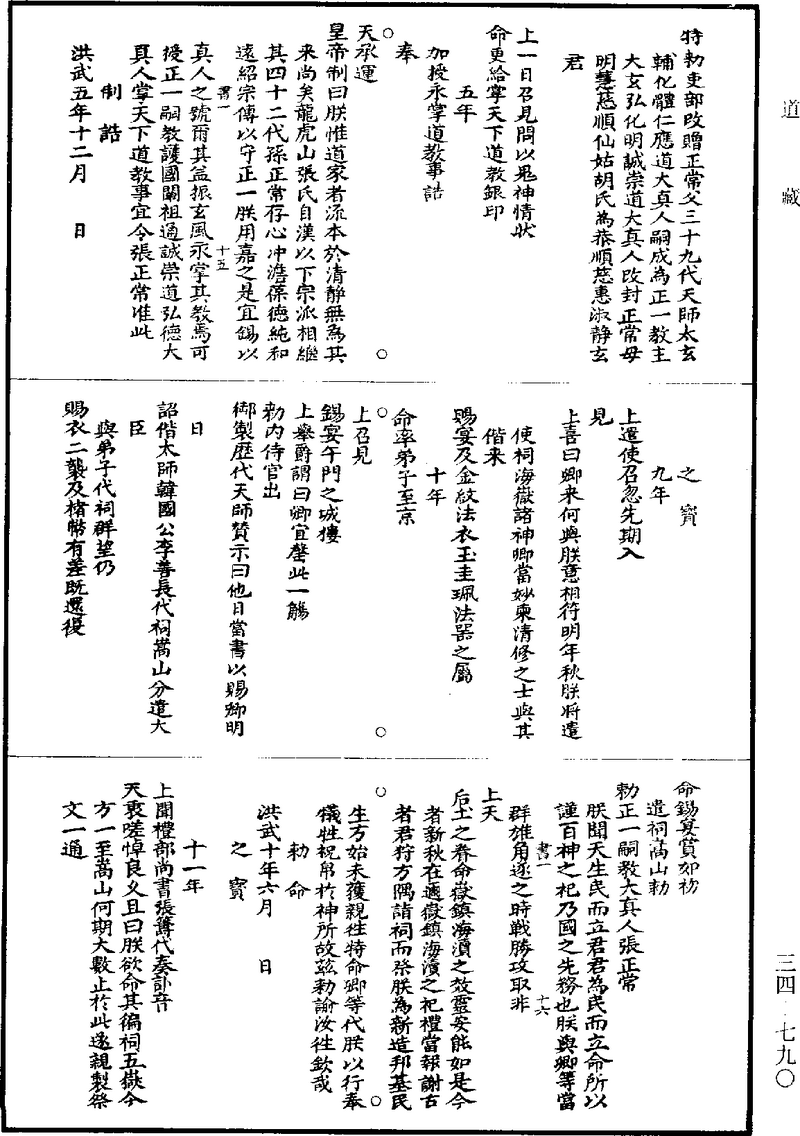 道藏
特勑吏部改贈正常父三十九代天師太玄
輔化體仁應道大真人嗣成為正一教主
大玄弘化明誠崇道大真人改封正常母
明慧慈順仙姑胡氏為恭順慈惠淑静玄
君
上一日召見問以鬼神情狀
命更給掌天下道教銀印
五年
加授永掌道教事誥
奉
天承運
皇帝制曰朕惟道家者流本於清静無為其
来尚矣龍虎山張氏自漢以下宗派相繼
其四十二代孫正常存心冲澹葆德純和
遠紹宗傳以守正一朕用嘉之是宜錫以
書一
十五
真人之號爾其益振玄風永掌其教焉可
授正一嗣教護國闡祖通誠崇道弘德大
真人掌天下道教事宜令張正常准此
制誥
洪武五年十二月 日
之寶
九年
上遣使召忽先期入
見
上喜曰卿来何與朕意相符明年秋朕將遣
使祠海嶽諸神卿當妙柬清修之士與其
偕来
賜宴及金紋法衣玉圭珮法器之屬
十年
命率弟子至京
上召見
錫宴午門之城樓
上舉爵謂曰卿宜罄此一觴
勑内侍官出
御製歷代天師贊示曰他日當書以賜卿明
日
詔偕太師韓國公李善長代祠嵩山分遣大
臣
與弟子代祠群望仍
賜衣二襲及楮幣有差既還復
命錫宴賞如初
遣祠嵩山勑
勑正一嗣教大真人張正常
朕聞天生民而立君君為民而立命所以
謹百神之祀乃國之先務也朕與卿等當
書一
十六
群雄角逐之時戰勝攻取非
上天
后土之眷命嶽鎮海瀆之效靈安能如是今
者新秋在邇嶽鎮海瀆之祀禮當報謝古
者君狩方隅詣祠而祭朕為新造邦基民
生方始未獲親往特命卿等代朕以行奉
犧牲祝帛於神所故兹勑諭汝往欽哉
勑命
洪武十年六月 日
之寶
十一年
上聞禮部尚書張籌代奏訃音
天衷嗟悼良乆且曰朕欲命其徧祠五嶽今
方一至嵩山何期大數止於此遂親製祭
文一通
三四·七九〇